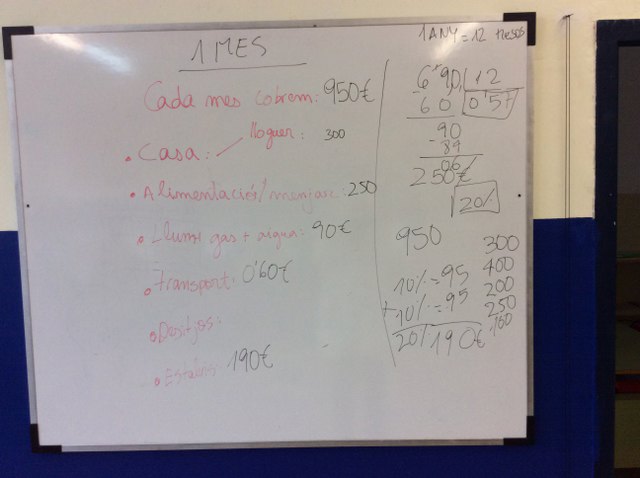 1 MES
Cada mes cobrem: 950€
• Casa: lloguer: 300
• Alimentació/menjar: 250
• Llum+gas+aigua: 90€
• Transport: 0'60€
• Desitjos:
• Estalvis: 190€
1 ANY = 12 mesos
6'90 12
60 0'57
90
- 89
06
250€
20%
950
10% = 95
+ 10% = 95
20% 190€
300
400
200
250
100